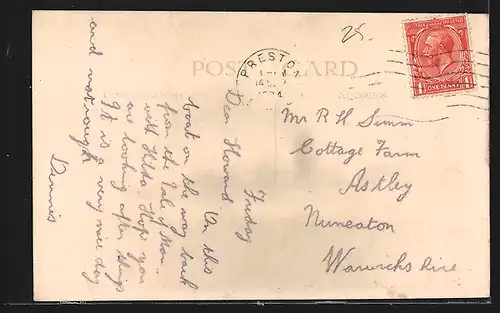 25.
POST CARD
PRESTON
POSTAGE REVENUE
ONE PENNY
ADDRESS
Friday
Dear Howard
On this
boat on the way back
from the Isle of Man.
with Hilda Hope you
are looking after things
It is a very nice day
and not rough
Dennis
Mr R H Simm
Cottage Farm
Astley
Nuneaton
Warwickshire